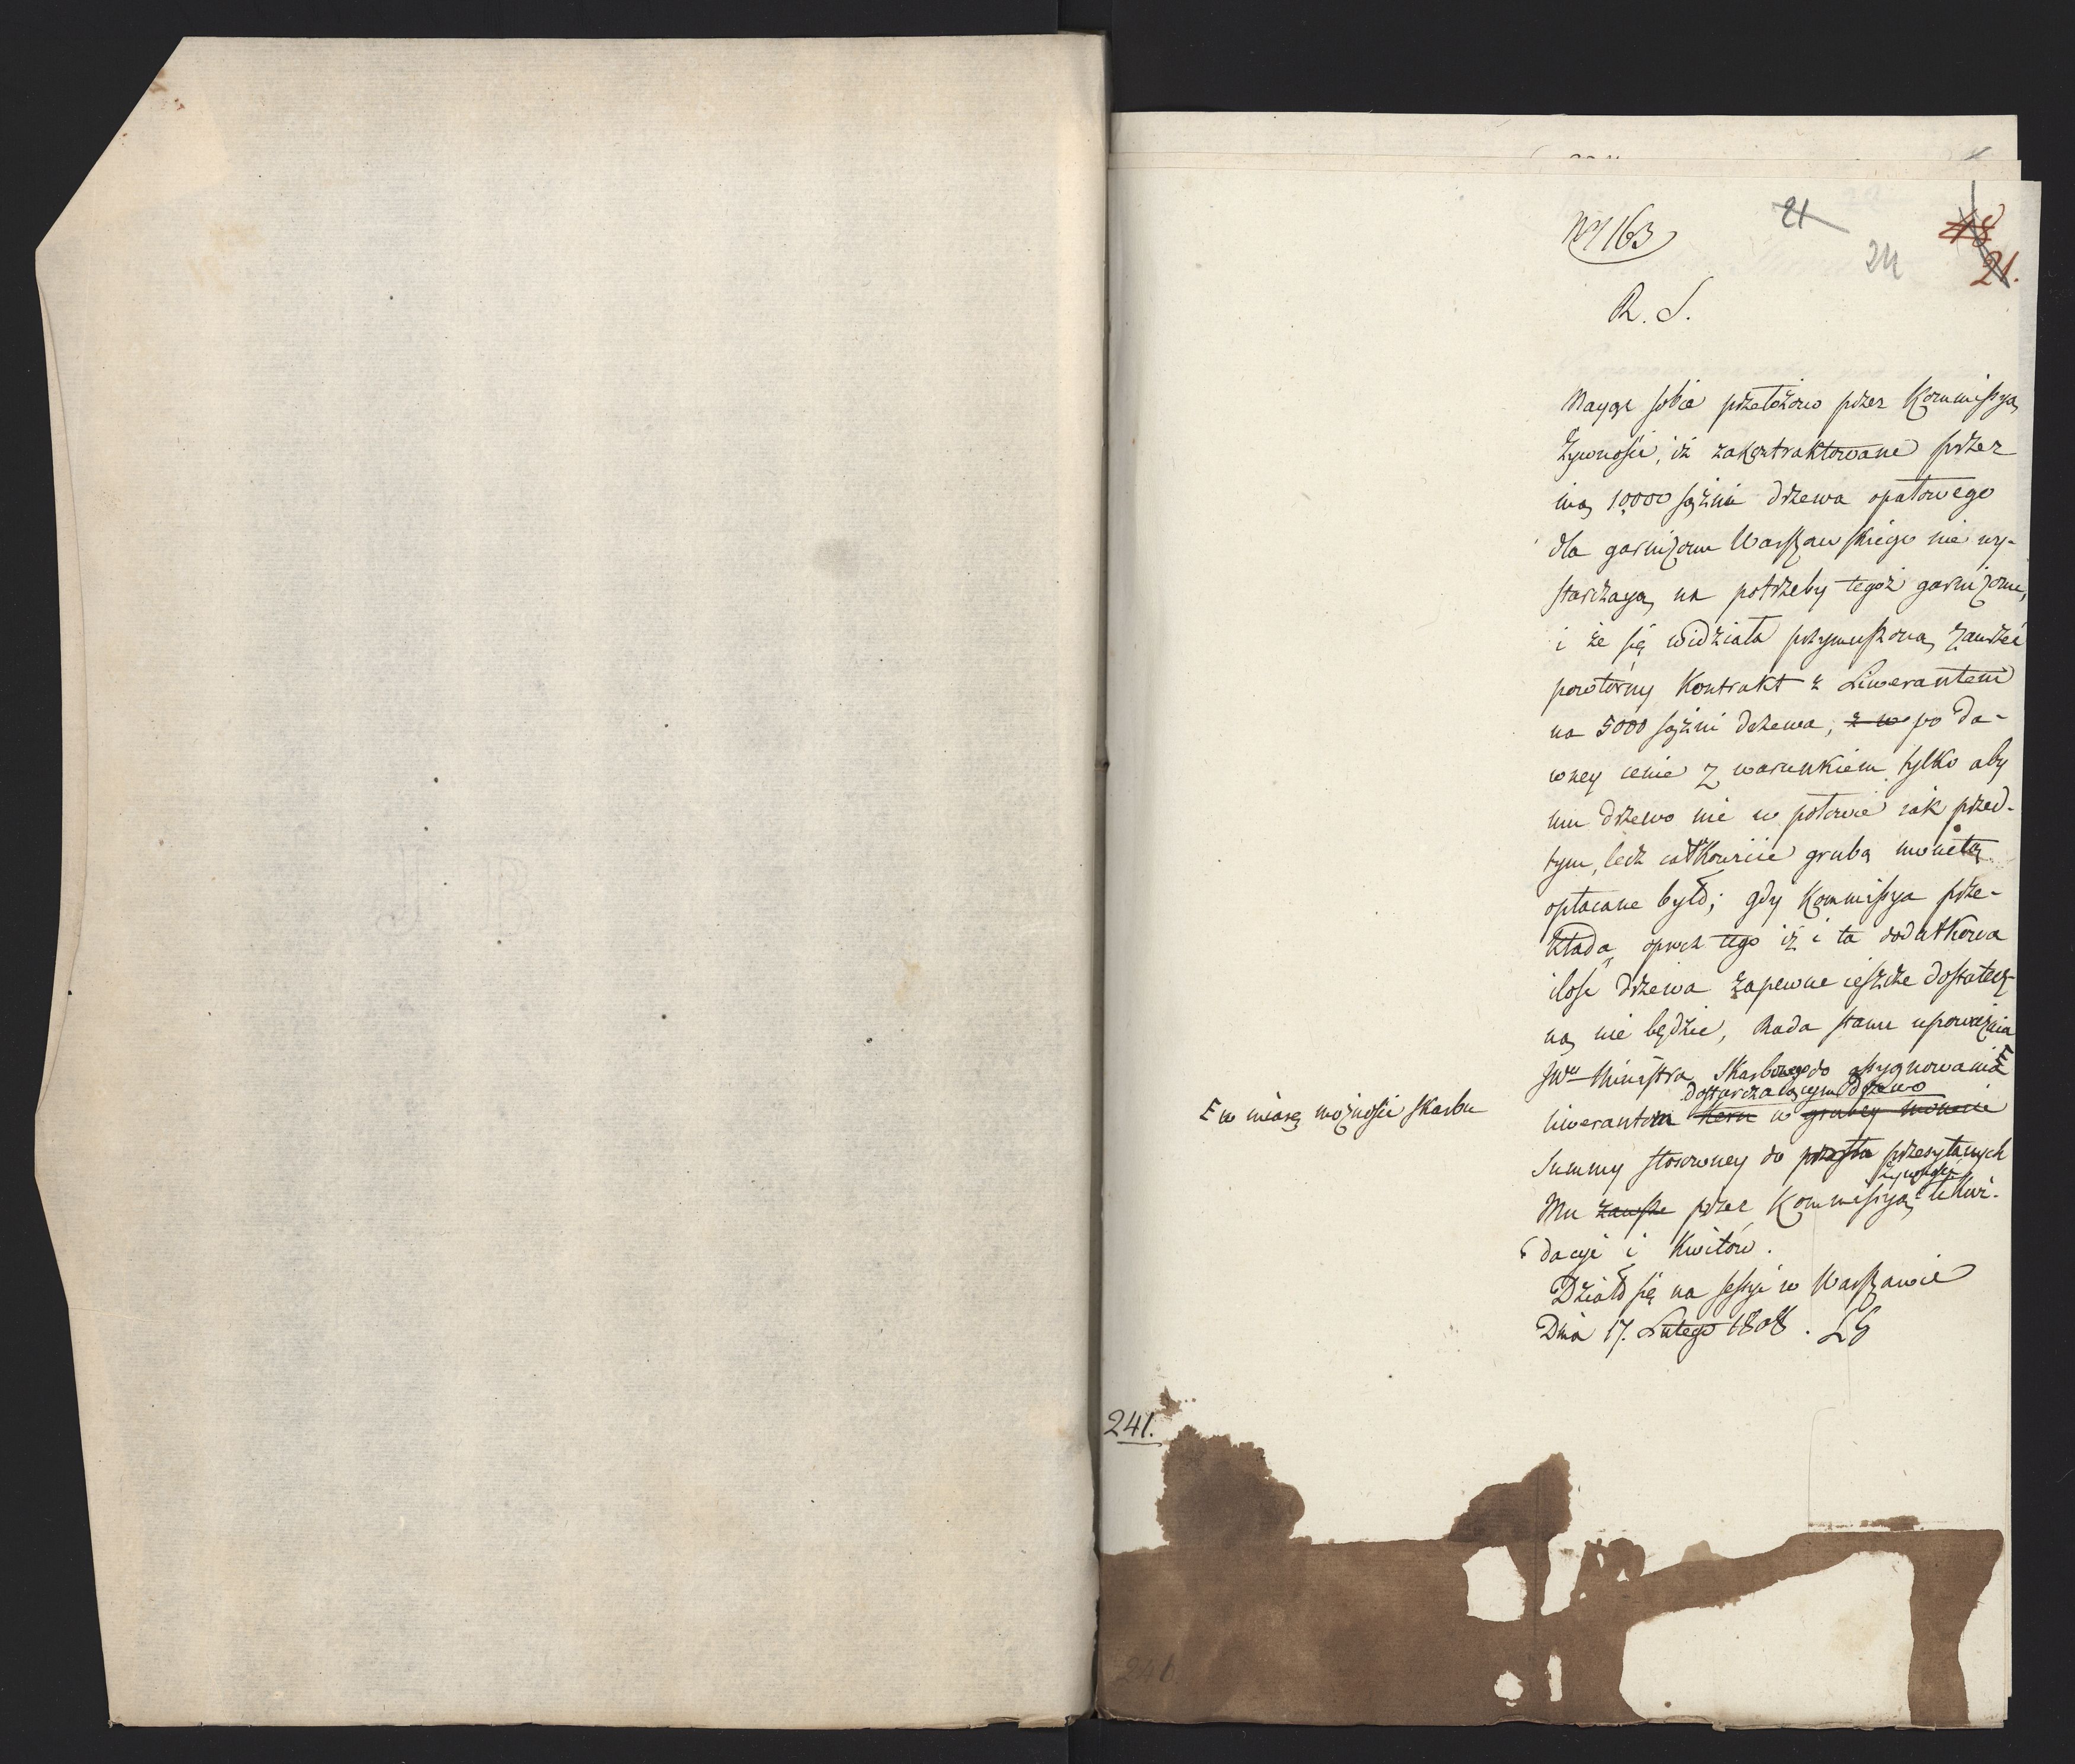 21
No 163
24
18
21.
R. S.
Maygc sobie przełożono przez Kommissyą
Żywności, iż zakontraktowane przez
nią 10,000 sążni drzewa opałowego
dla garnizonu Warszawskiego nie wy-
starczaią na potrzeby tegoż garnizonu,
i że się widziała przymuszoną zawrzeć
powtórny Kontrakt z Liwerantem
na 5000 sążni drzewa, z w po da-
wney cenie z warunkiem tylko aby
mu drzewo nie w połowie iak przed-
tym, lecz całkowicie grubą monetą
opłacane było; gdy Kommissya prze-
kłada, oprócz tego iż i ta dodatkowa
ilość drzewa zapewne ieszcze dostatecz-
ną nie będzie, Rada Stanu upoważnia
JWo Ministra Skarbowego do assygnowania E
dostarczaiącym drzewo
liwerantom temu w grubey monecie
E w miarę możności skarbu
Summy stosowney do przesła przesyłanych
Żywności
Mu zawsze przez Kommissyą likwi-
dacyi i Kwitów.
Działo się na sessyi w Warszawie
Dnia 17. Lutego 1808. LG
241.
241